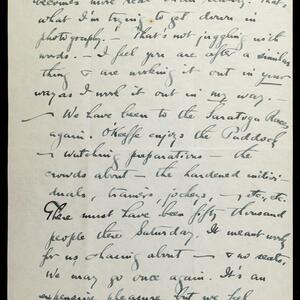 becomes more real than reality. That's
what I'm trying to get down in
photography. — That's not juggling with
words. — I feel you are after a similar
thing & are working it out in your
way as I work it out in my way. —
— We have been to the Saratoga Races
again. O'Keeffe enjoys the Paddock
— watching preparations — the
crowds about — the hardened indivi-
duals, trainers, jockeys, — etc, etc.
There must have been fifty thousand
people there Saturday. It meant work
for us chasing about — & no seats,
We may go once again. It's an
expensive pleasure but we feel